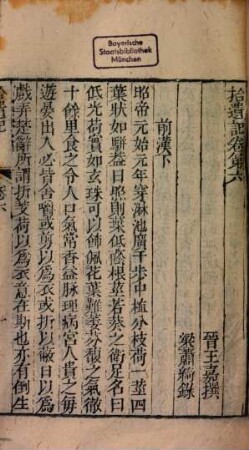 Bayerische
Staatsbibliothek
München
拾遺記卷第六
晉王嘉撰
梁蕭綺錄
前漢下
昭帝元始元年穿淋池廣千步中植分枝荷一莖四
葉狀如駢蓋日照則葉低蔭根莖若葵之衛足名曰
低光荷實如玄珠可以飾佩花葉雖萎芬馥之氣徹
十餘里食之令人口氣常香益脉理病宮人貴之每
遊宴出入必皆含嚼或剪以為衣或折以蔽日以為
戲弄楚辭所謂折芰荷以為衣意在斯也亦有倒生